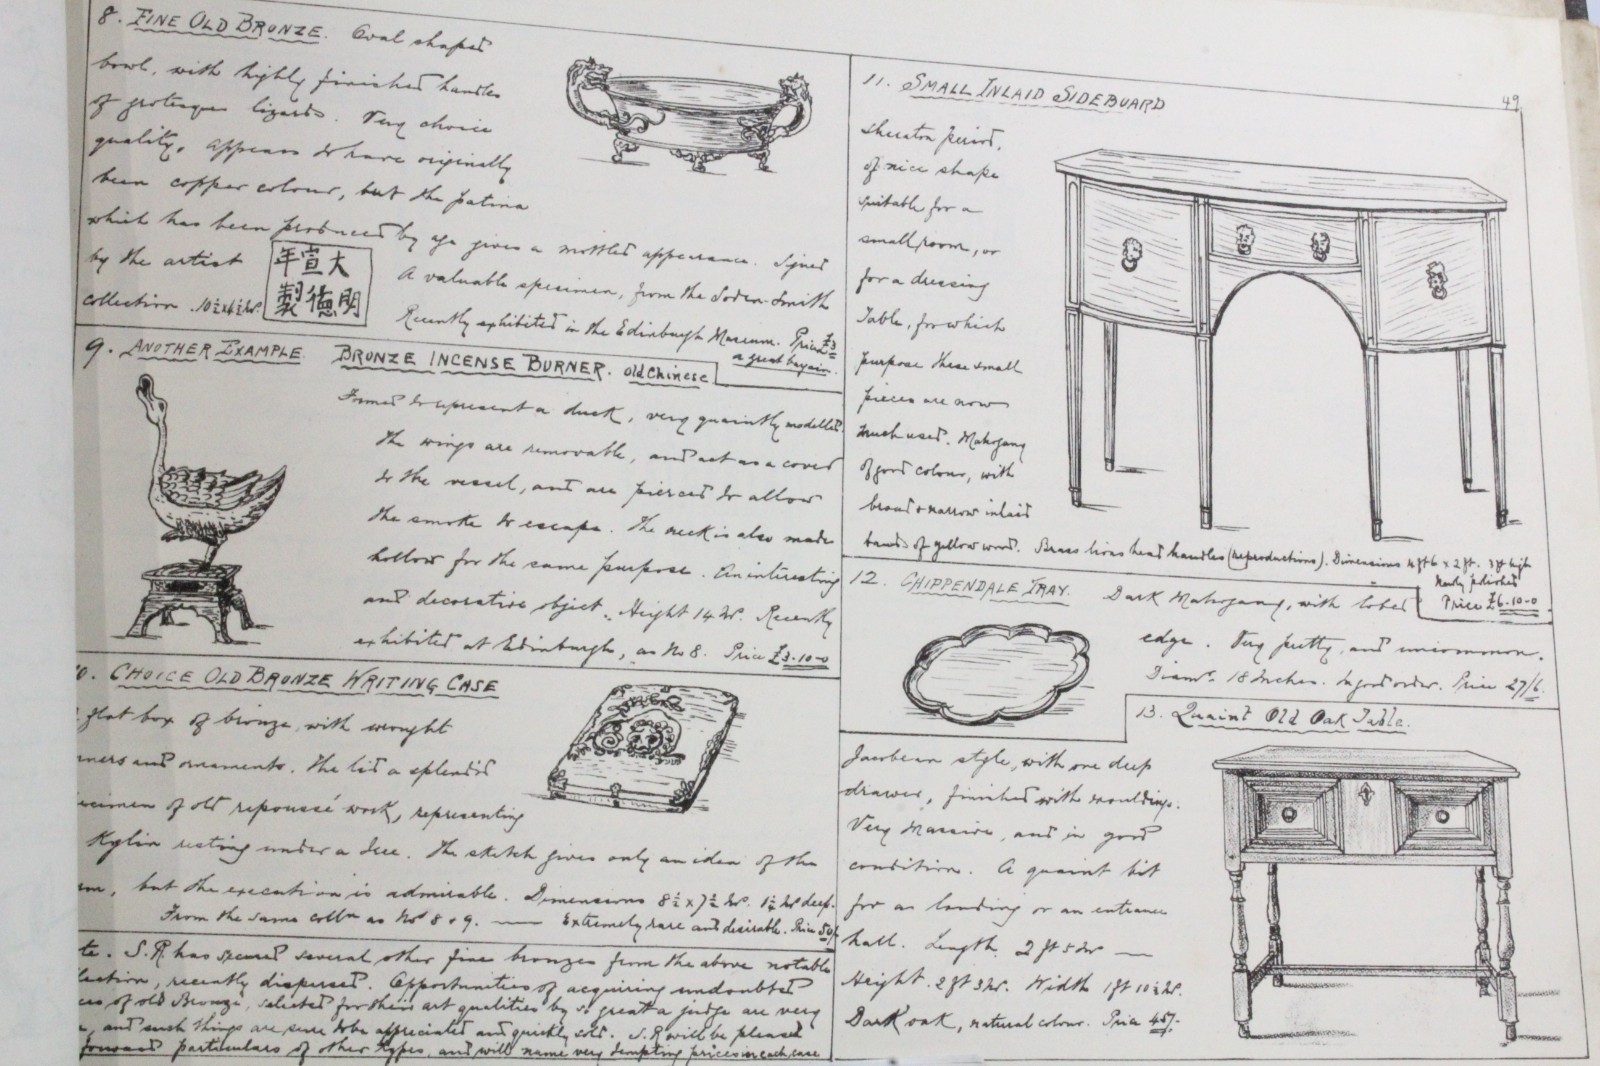 8. FINE OLD BRONZE. Oval shaped
bowl, with highly finished handles
of grotesque lizards. Very choice
quality. Appears to have originally
been copper colour, but the patina
which has been produced by age gives a mottled appearance. Signed
by the artist
大明
宣德
年製
A valuable specimen, from the Soden-Smith
collection. 10½x4½ ins.
Recently exhibited in the Edinburgh Museum. Price £3
a great bargain.
9. ANOTHER EXAMPLE. BRONZE INCENSE BURNER. Old Chinese
Formed to represent a duck, very quaintly modelled.
The wings are removable, and act as a cover
to the vessel, and are pierced to allow
the smoke to escape. The neck is also made
hollow for the same purpose. An interesting
and decorative object. Height 14 ins. Recently
exhibited at Edinburgh, as No 8. Price £3-10-0
0. CHOICE OLD BRONZE WRITING CASE
flat box of bronze, with wrought
and ornaments. The lid a splendid
of old repoussé work, representing
Kylin resting under a tree. The sketch gives only an idea of the
but the execution is admirable. Dimensions 8½ x 7½ ins. 1¼ ins deep.
From the same colln as Nos 8 & 9. — Extremely rare and desirable. Price 50/-
S.R has secured several other fine bronzes from the above notable
recently dispersed. Opportunities of acquiring undoubted
of old Bronze, selected for their art qualities by so great a judge are very
and such things are sure to be appreciated and quickly sold. S.R will be pleased
forward particulars of other types, and will name very tempting prices in each case
49
11. SMALL INLAID SIDEBOARD
Sheraton period,
of nice shape
suitable for a
small room, or
for a dressing
Table, for which
purpose these small
pieces are now
much used. Mahogany
of good colour, with
broad & narrow inlaid
bands of yellow wood. Brass lions head handles (reproductions). Dimensions 4 ft 6 x 2 ft. 3 ft high
Newly polished
Price £6-10-0
12. CHIPPENDALE TRAY. Dark Mahogany, with lobed
edge. Very pretty, and uncommon.
Diamr. 18 inches. In good order. Price 27/6.
13. Quaint Old Oak Table.
Jacobean style, with one deep
drawer, finished with mouldings.
Very Massive, and in good
condition. A quaint bit
for a landing or an entrance
hall. Length. 2 ft 5 ins —
Height. 2 ft 3 ins. Width 1 ft 10½ ins.
Dark oak, natural colour. Price 45/-